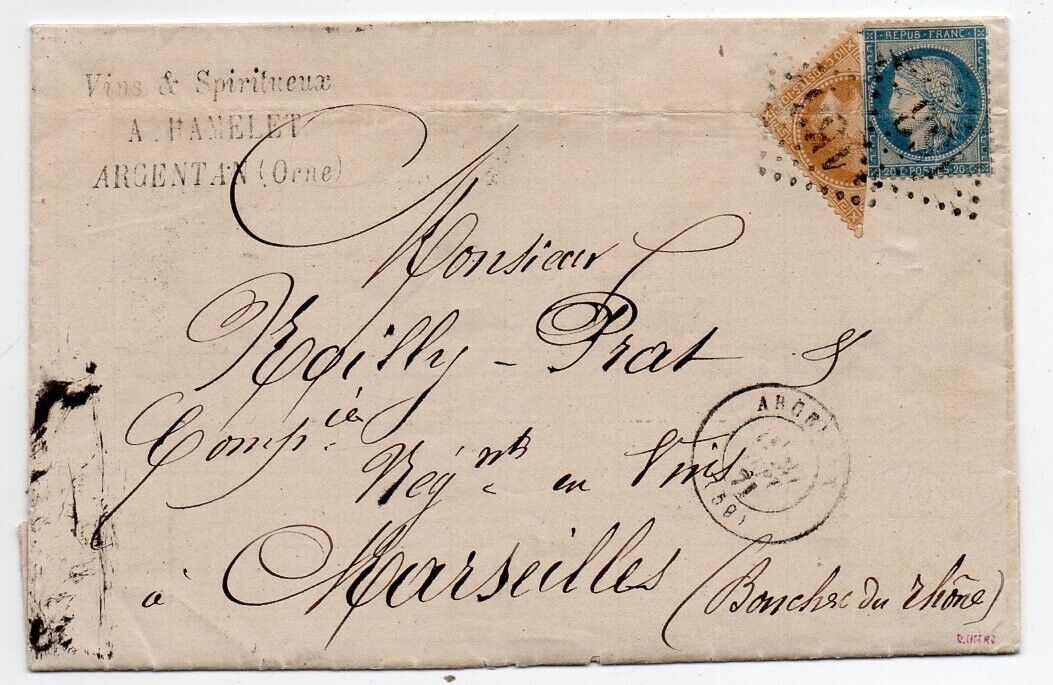 Vins & Spiritueux
A. HAMELET
ARGENTAN (Orne)
REPUB. FRANC.
20 C POSTES 20 C
Monsieur
Noilly - Prat &
Compie
Négnt en Vins
à Marseilles (Bouches du rhône)
71